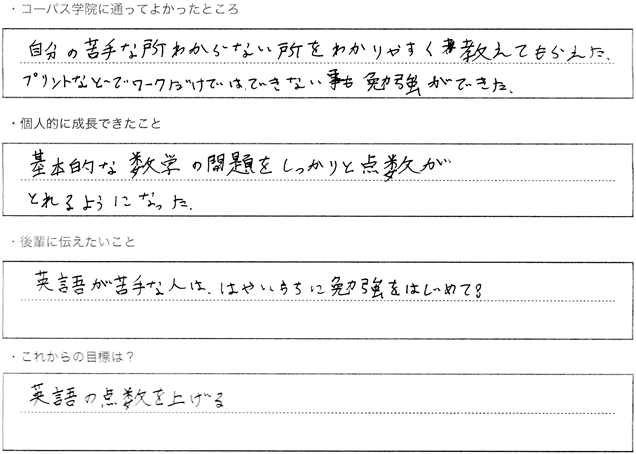 ・コーパス学院に通ってよかったところ
自分の苦手な所わからない所をわかりやすく教えてもらえた。
プリントなどでワークだけでは、できない事も勉強ができた。
・個人的に成長できたこと
基本的な数学の問題をしっかりと点数が
とれるようになった。
・後輩に伝えたいこと
英語が苦手な人は、はやいうちに勉強をはじめて
・これからの目標は？
英語の点数を上げる